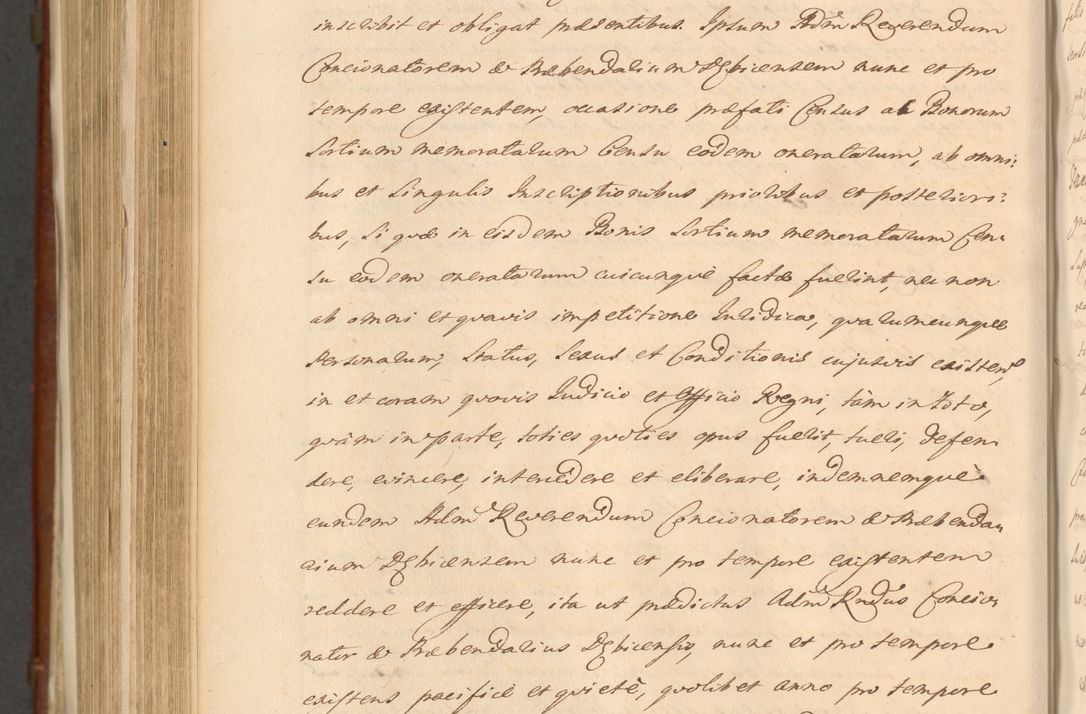 inscribit et obligat præsentibus. Ipsum Adm Reverendum
Concionatorem & Præbendarium Dębicensem nunc et pro
tempore existentem, occasione præfati Census ab Bonorum
Sortium memoratarum Censu eodem oneratarum, ab omni:
bus et singulis Inscriptionibus prioribus et posteriori:
bus, si quæ in eisdem Bonis Sortium memoratarum Cen-
su eodem oneratarum cuicunque factæ fuerint, nec non
ab omni et quavis impetitione Iuridica, quarumcunque
Personarum, Status, Sexus et Conditionis cujusvis existen,
in et coram quovis Iudicio et Officio Regni, tàm in Toto,
quàm in parte, toties quoties opus fuerit, tueri, defen-
dere, evincere, intercedere et eliberare, indemnemque
eundem Adm Reverendum Concionatorem & Præbenda-
rium Dębicensem nunc et pro tempore existentem
reddere et efficere, ita ut prædictus Adm Rndus Concio-
nator & Præbendarius Dębicensis, nunc et pro tempore
existens pacificè et quietè, quolibet anno pro tempore